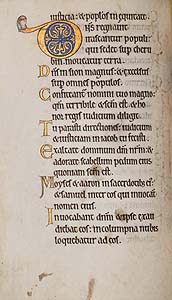 iusticia: & poplos in equitate.
DNS regnauit
irascantur populi
qui sedet sup cheru
bin: moueatur terra.
Dns in sion magnus: & excelsus
sup omnes populos.
Confiteant nomini tuo magno
qm terribile & scm est: & ho
nor regis iudicium diligit.
Tu parasti directiones: iudicium
& iusticiam in iacob tu fecisti.
Exaltate dominum dm nrm: &
adorate scabellum pedum eius
quoniam scm est.
Moyses & aaron in sacerdotib; ei;
& samuel inter eos qui inuocāt
nomen eius
Inuocabant dnm & ipse exau
diebat eos: in columpna nubis
loquebatur ad eos.